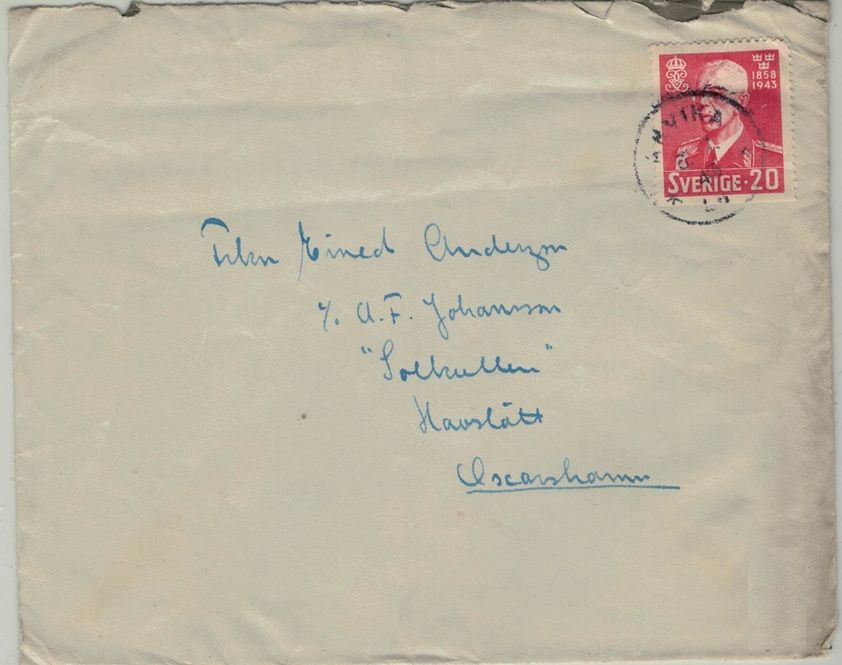 1858
1943
SVERIGE·20
ARVIKA
Frkn Anderzon
℅ A.F. Johansson
"Solkullen"
Havslätt
Oscarshamn